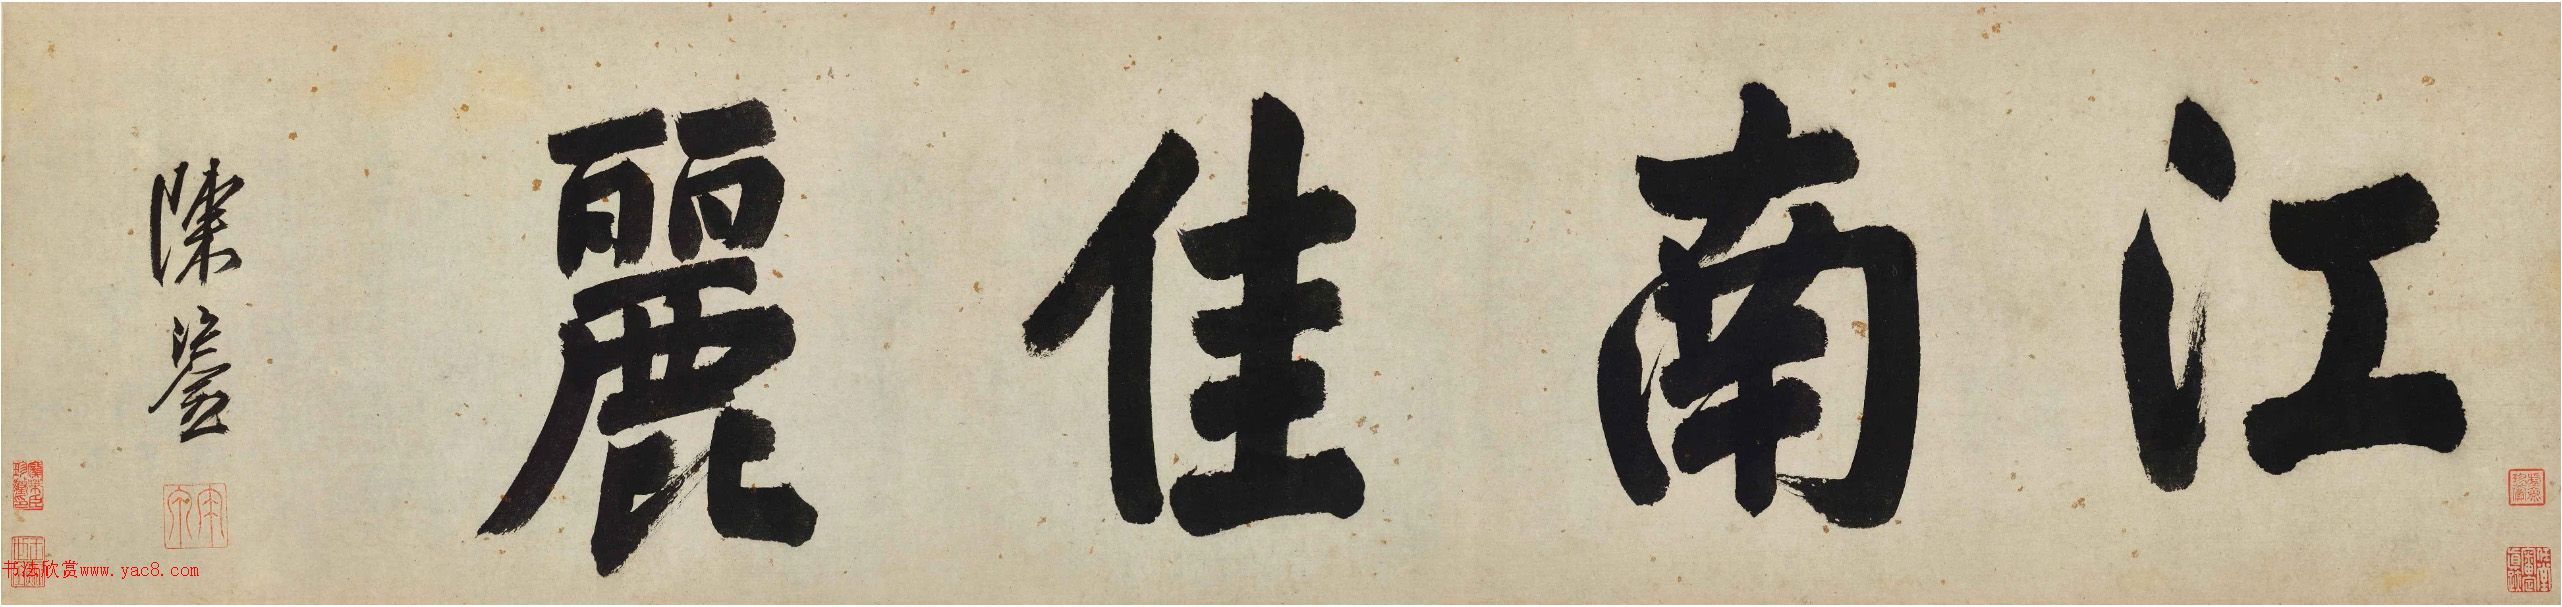 江南佳麗
陳鎏
书法欣赏www.yac8.com